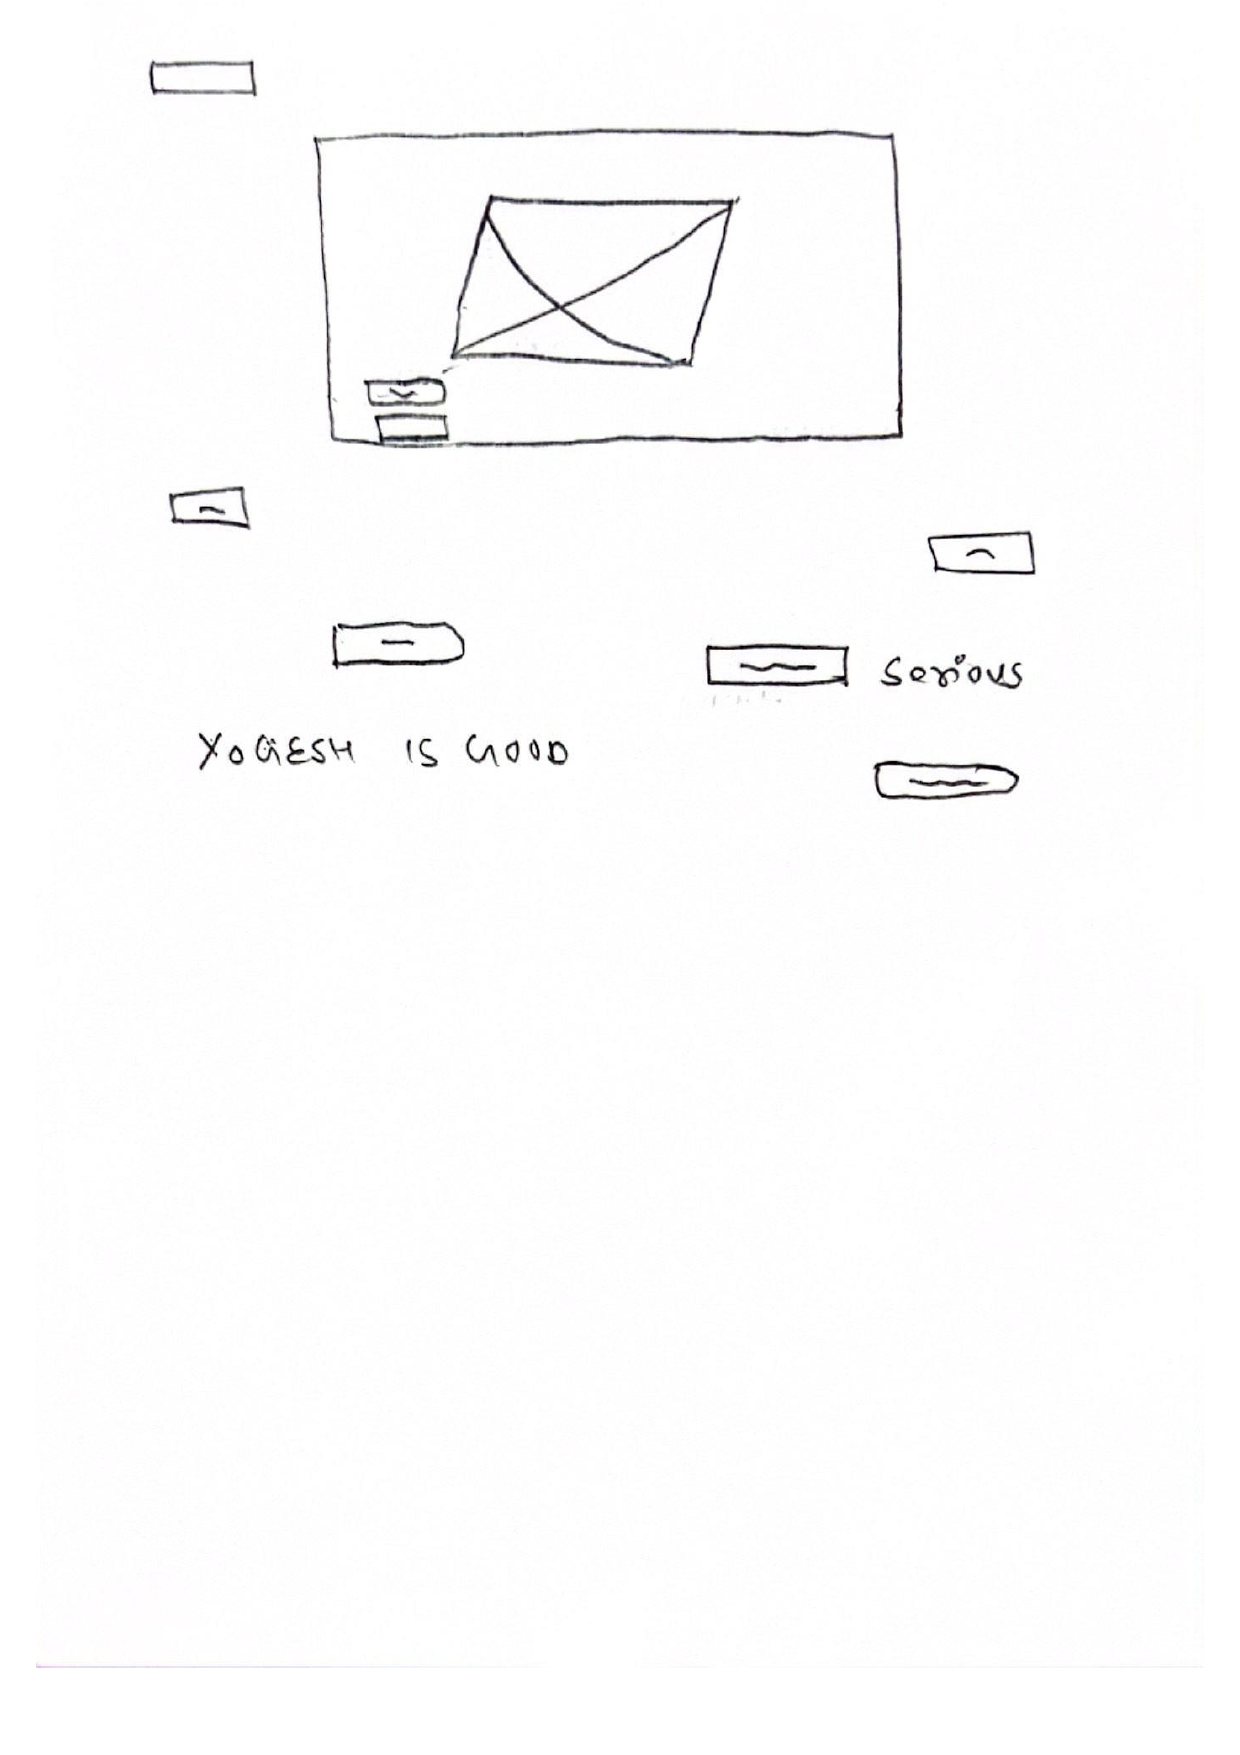 serious
YOGESH IS GOOD